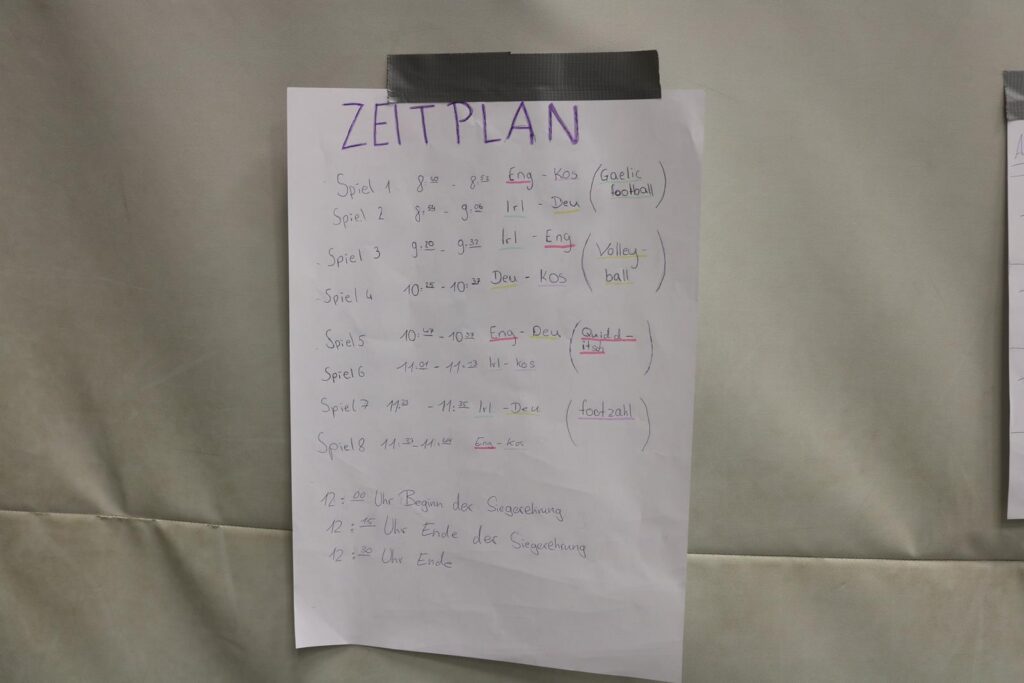 ZEITPLAN
Spiel 1 8 - Eng - Kos (Gaelic
football)
Spiel 2 - 9. Irl - Deu
Spiel 3 9.20 - 9.32 Irl - Eng (Volley-
ball)
Spiel 4 10: - 10: Deu - KOS
Spiel 5 10: - 10: Eng - Deu (Quidd-
itsch)
Spiel 6 11:01 - 11:13 Irl - Kos
Spiel 7 - 11:25 Irl - Deu (footzahl)
Spiel 8 - Eng - Kos
12:00 Uhr Beginn der Siegerehrung
12:15 Uhr Ende der Siegerehrung
12:30 Uhr Ende